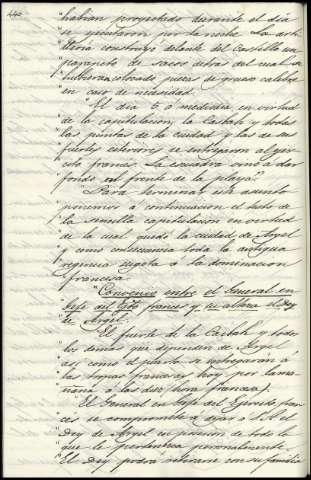 440
"habian proyectado durante el dia
"se ejecutaron por la noche. La arti
"lleria construyó delante del Castillo un
"parapeto de sacos detras del cual se
"hubieran colocado piezas de grueso calibre
"en caso de necesidad.
"El dia 5 á mediodia en virtud
"de la capitulacion, la Casbah y todas
"las puertas de la ciudad y las de sus
"fuertes exteriores se entregaron al ejer
"cito francés. La escuadra vino á dar
"fondo al frente de la playa."
"Para terminar este asunto
"ponemos á continuacion el texto de
"la sencilla capitulacion en virtud
"de la cual quedó la ciudad de Argel
"y como consecuencia toda la antigua
"regencia sugeta á la dominacion
"francesa.
"Convenio entre el General en
"Gefe del Ejto francés y su alteza el Dey
"de Argel.
"El fuerte de la Casbah y todos
"los demas que dependen de Argel
"asi como el puerto se entregarán á
"las tropas francesas hoy por la ma-
"ñana á las diez (hora francesa).
"El General en Gefe del Ejercito fran
"ces se compromete á dejar á S.A. el
"Dey de Argel en posesion de todo lo
"que le pertenezca personalmente.
"El Dey podrá retirarse con su familia